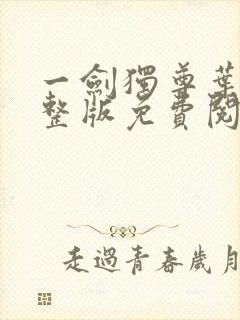 一劍獨尊葉
整版免費閱
走過青春歲月